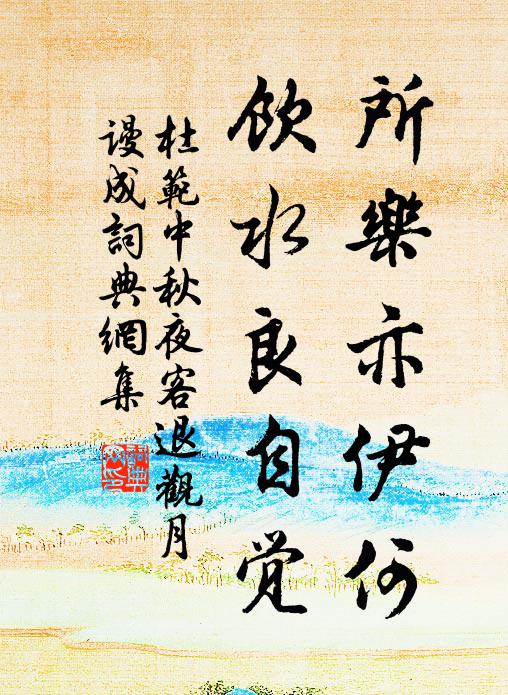 所樂亦伊何
飲水良自覺
杜範中秋夜客退觀月
謾成詞典網集